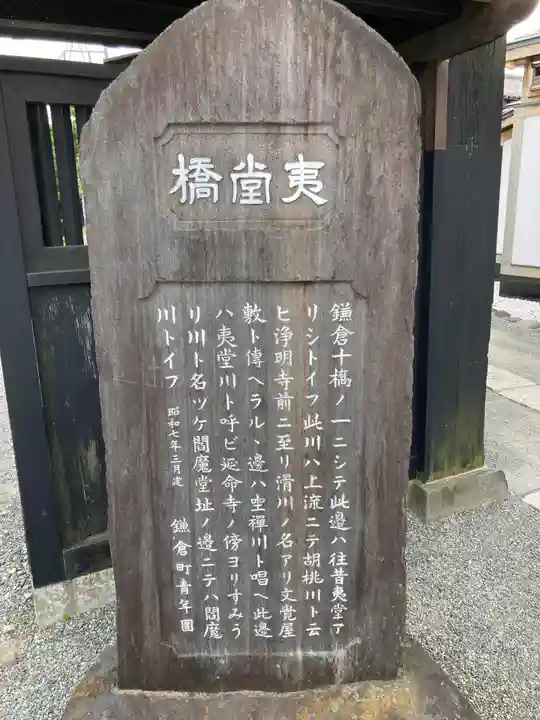 夷堂橋
鎌倉十橋ノ一ニシテ此邊ハ往昔夷堂ア
リシトイフ此川ハ上流ニテ胡桃川ト云
ヒ浄明寺前ニ至リ滑川ノ名アリ文覺屋
敷ト傳ヘラルヽ邊ハ坐禪川ト唱ヘ此邊
ハ夷堂川ト呼ビ延命寺ノ傍ヨリすみう
リ川ト名ヅケ閻魔堂址ノ邊ニテハ閻魔
川トイフ 昭和七年三月建 鎌倉町青年團